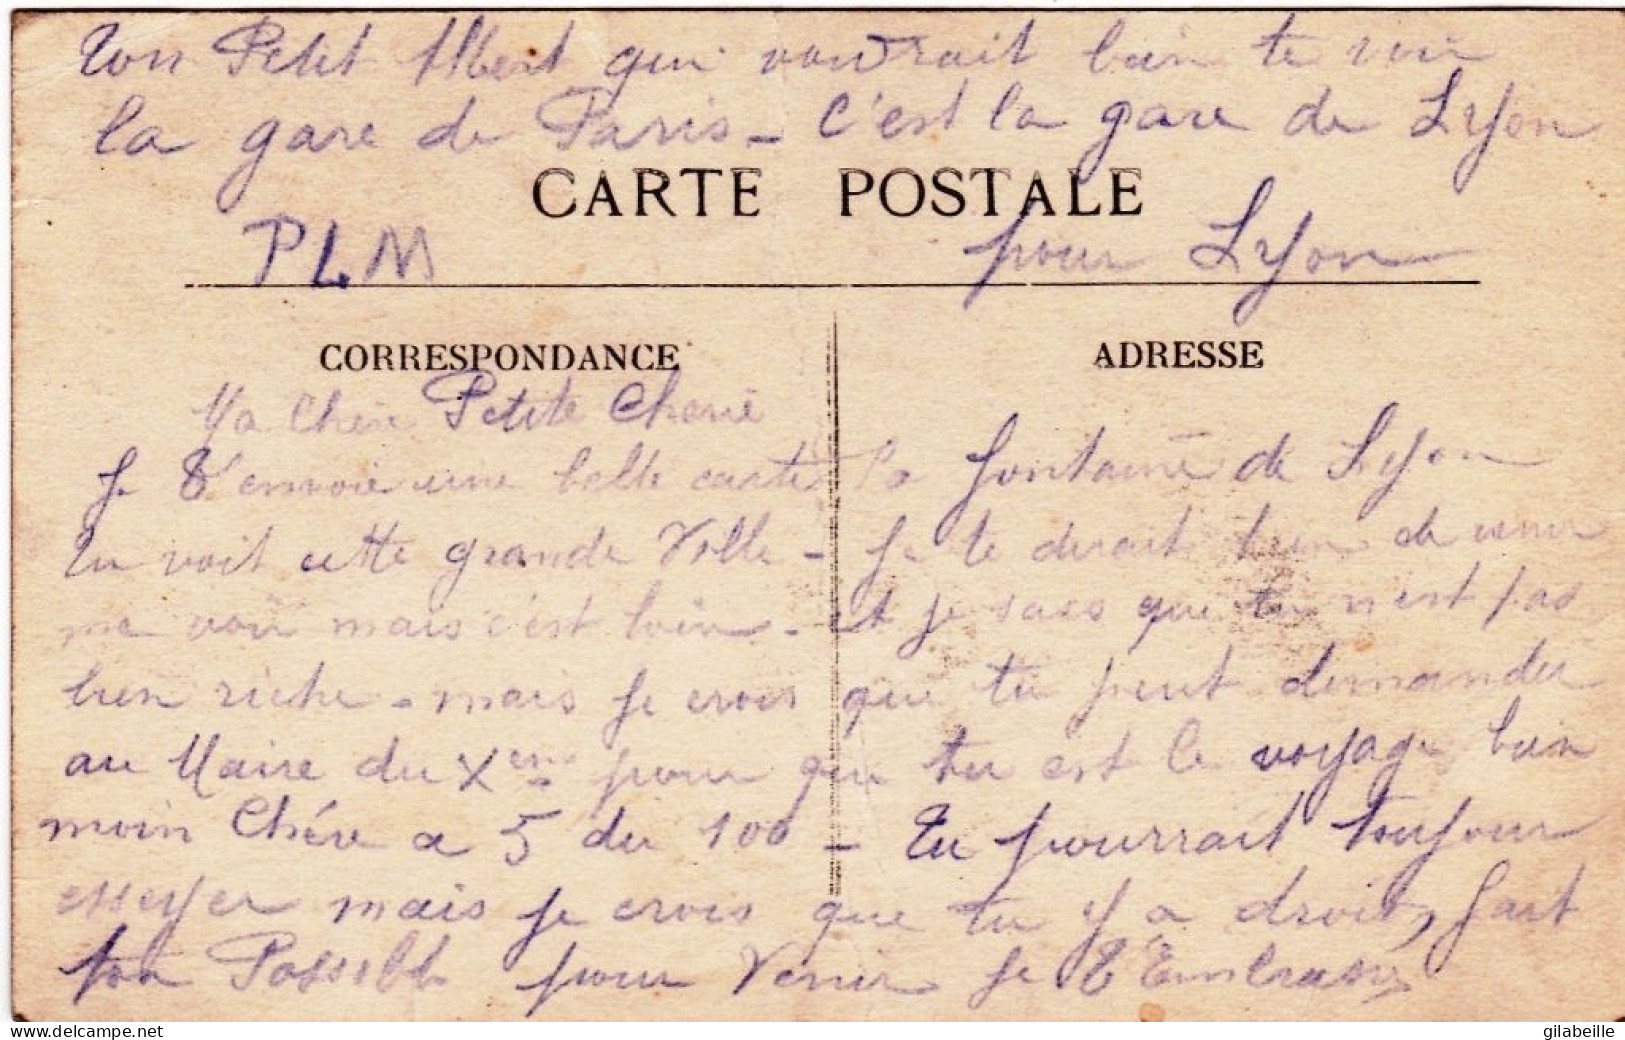 Ton Petit Albert qui voudrait bien te voir
la gare de Paris - C'est la gare de Lyon
CARTE POSTALE
PLM pour Lyon
CORRESPONDANCE
ADRESSE
Ma Chère Petite Cherie
Je t'envoie une belle carte la fontaine de Lyon
Tu voit cette grande Ville - Je te dirait bien de venir
me voir mais c'est loin - et je sais que tu n'est pas
bien riche - mais je crois que tu peut demander
au Maire du Xem pour que tu est le voyage bien
moin Chére a 5 du 100 - Tu pourrait toujour
esseyer mais je crois que tu y a droit, fait
ton Possible pour Venir je t'Embrasse
gilabeille
www.delcampe.net